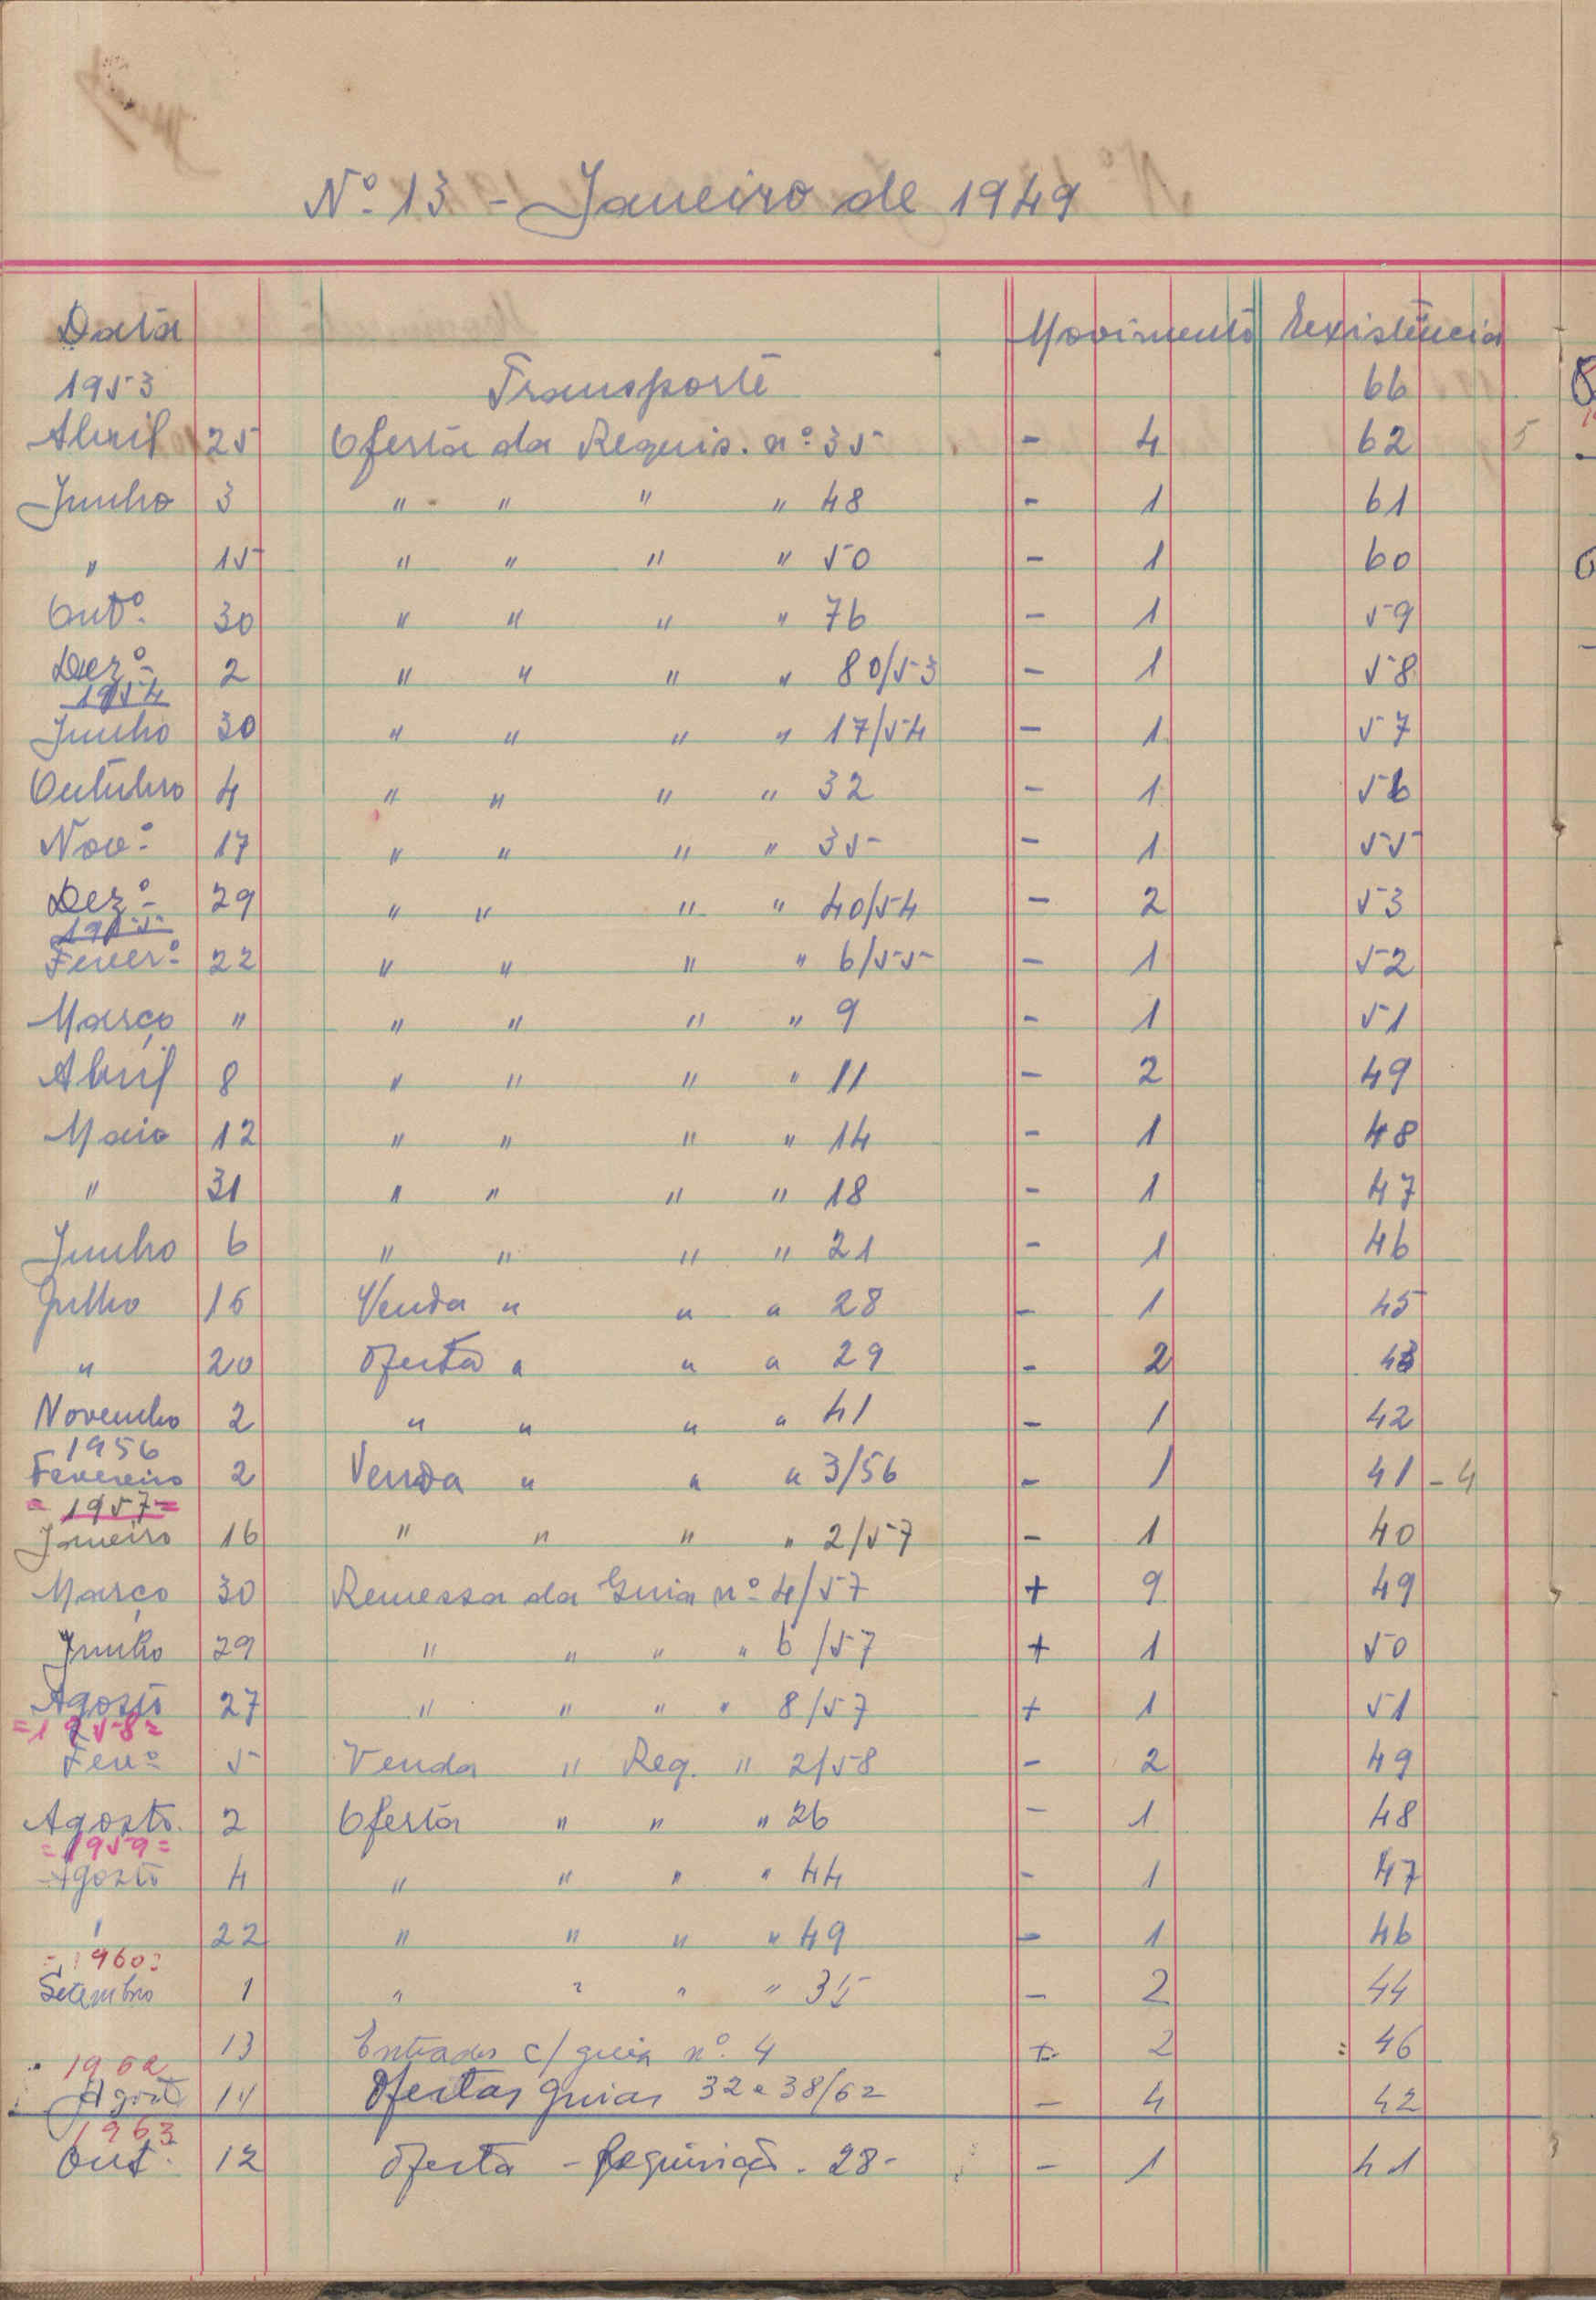 Nº 13 - Janeiro de 1949
Data Movimento Existência
1953 Transporte 66
Abril 25 Oferta da Requis. nº 35 - 4 62 5
Junho 3 " " " " 48 - 1 61
" 15 " " " " 50 - 1 60
Outº 30 " " " " 76 - 1 59
Dezº 2 " " " " 80/53 - 1 58
1954
Junho 30 " " " " 17/54 - 1 57
Outubro 4 " " " " 32 - 1 56
Novº 17 " " " " 35 - 1 55
Dezº 29 " " " " 40/54 - 2 53
1955
Feverº 22 " " " " 6/55 - 1 52
Março " " " " " 9 - 1 51
Abril 8 " " " " 11 - 2 49
Maio 12 " " " " 14 - 1 48
" 31 " " " " 18 - 1 47
Junho 6 " " " " 21 - 1 46
Julho 16 Venda " " " 28 - 1 45
" 20 Oferta " " " 29 - 2 43
Novembro 2 " " " " 41 - 1 42
1956
Fevereiro 2 Venda " " " 3/56 - 1 41 - 4
= 1957 =
Janeiro 16 " " " " 2/57 - 1 40
Março 30 Remessa da Guia nº 4/57 + 9 49
Junho 29 " " " " 6/57 + 1 50
Agosto 27 " " " " 8/57 + 1 51
= 1958 =
Fevº 5 Venda " Req. " 2/58 - 2 49
Agosto 2 Oferta " " " 26 - 1 48
= 1959 =
Agosto 4 " " " " 44 - 1 47
" 22 " " " " 49 - 1 46
= 1960 =
Setembro 1 " " " " 35 - 2 44
13 Entradas c/ guia nº 4 + 2 = 46
1962
Agost 14 Ofertas guias 32 e 38/62 - 4 42
1963
Out. 12 Oferta - Requisição - 28 - - 1 41